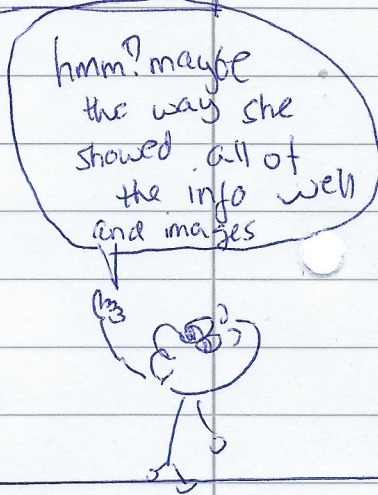 hmm? maybe
the way she
showed all of
the info well
and images